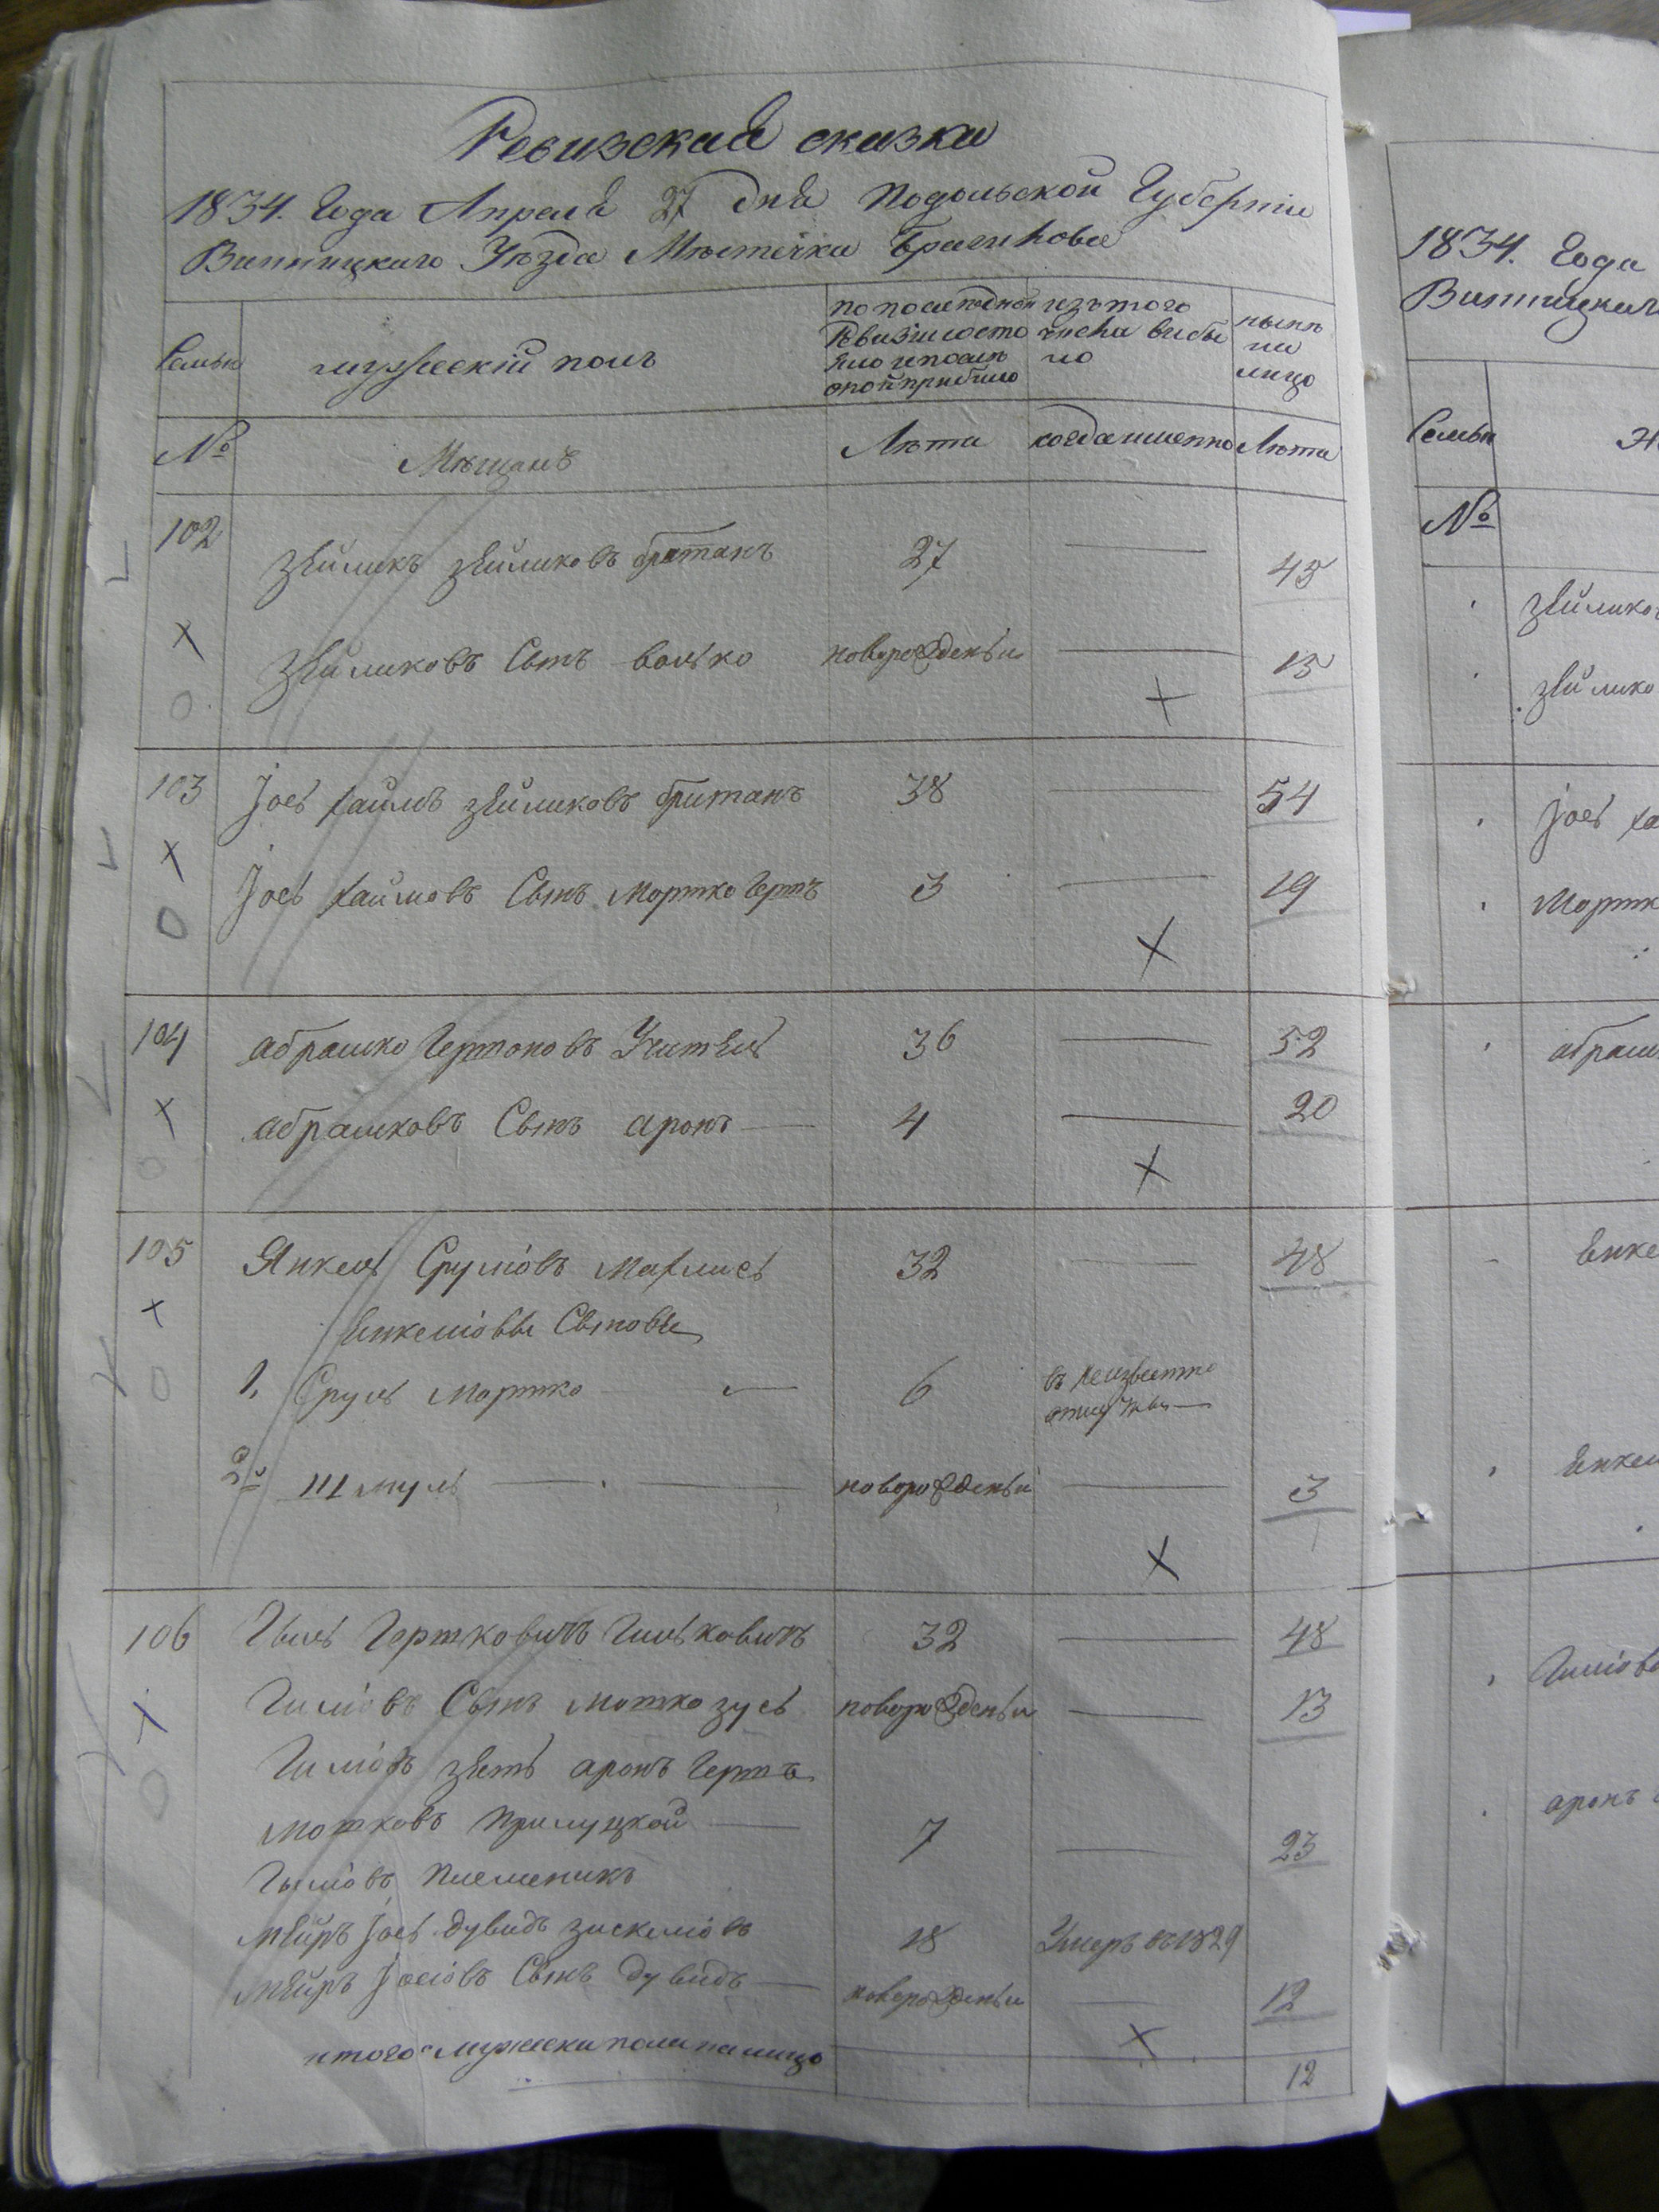 Ревизская сказка
1834. Года Апреля 27 дня Подольской Губернiи
Винницкаго Уѣзда Мѣстечка Браилова
Семьи
мужескiй полъ
по последней ревизiи состояло и после оной прибыло
изъ того числа выбыло
нынѣ на лицо
№
Мѣщанъ
Лѣта
когда именно
Лѣта
102 Зейликъ Зейликовъ братанъ 27 43
Зейликовъ Сынъ Волько новорожденый 15
103 Iось Хаимъ Зейликовъ братанъ 38 54
Iось Хаймовъ Сынъ Мортко Герпъ 3 19
104 Абрашко Гершоновъ Учитель 36 52
Абрашковъ Сынъ Аронъ 4 20
105 Янкель Сруліовъ Махлись 32 48
Янкеліовы Сыновья
1. Сруль Мортко 6 въ неизвестной отлучки
2й Шмуль новорожденый 3
106 Гиль Гершковичъ Гильковичъ 32 48
Гиліовъ Сынъ Мотко Зусь новорожденый 13
Гиліовъ зять Аронъ Гершъ
Мотковъ Прилуцкой 7 23
Гиліовъ племеникъ
Мейръ Iось Дувидъ Зискеліовъ 18 Умеръ въ 1829
Мейръ Iосіовъ Сынъ Дувидъ новорожденый 12
итого мужеска пола на лицо 12
1834. Года
Винницкаго
Семьи
№
Абраш
Аронъ